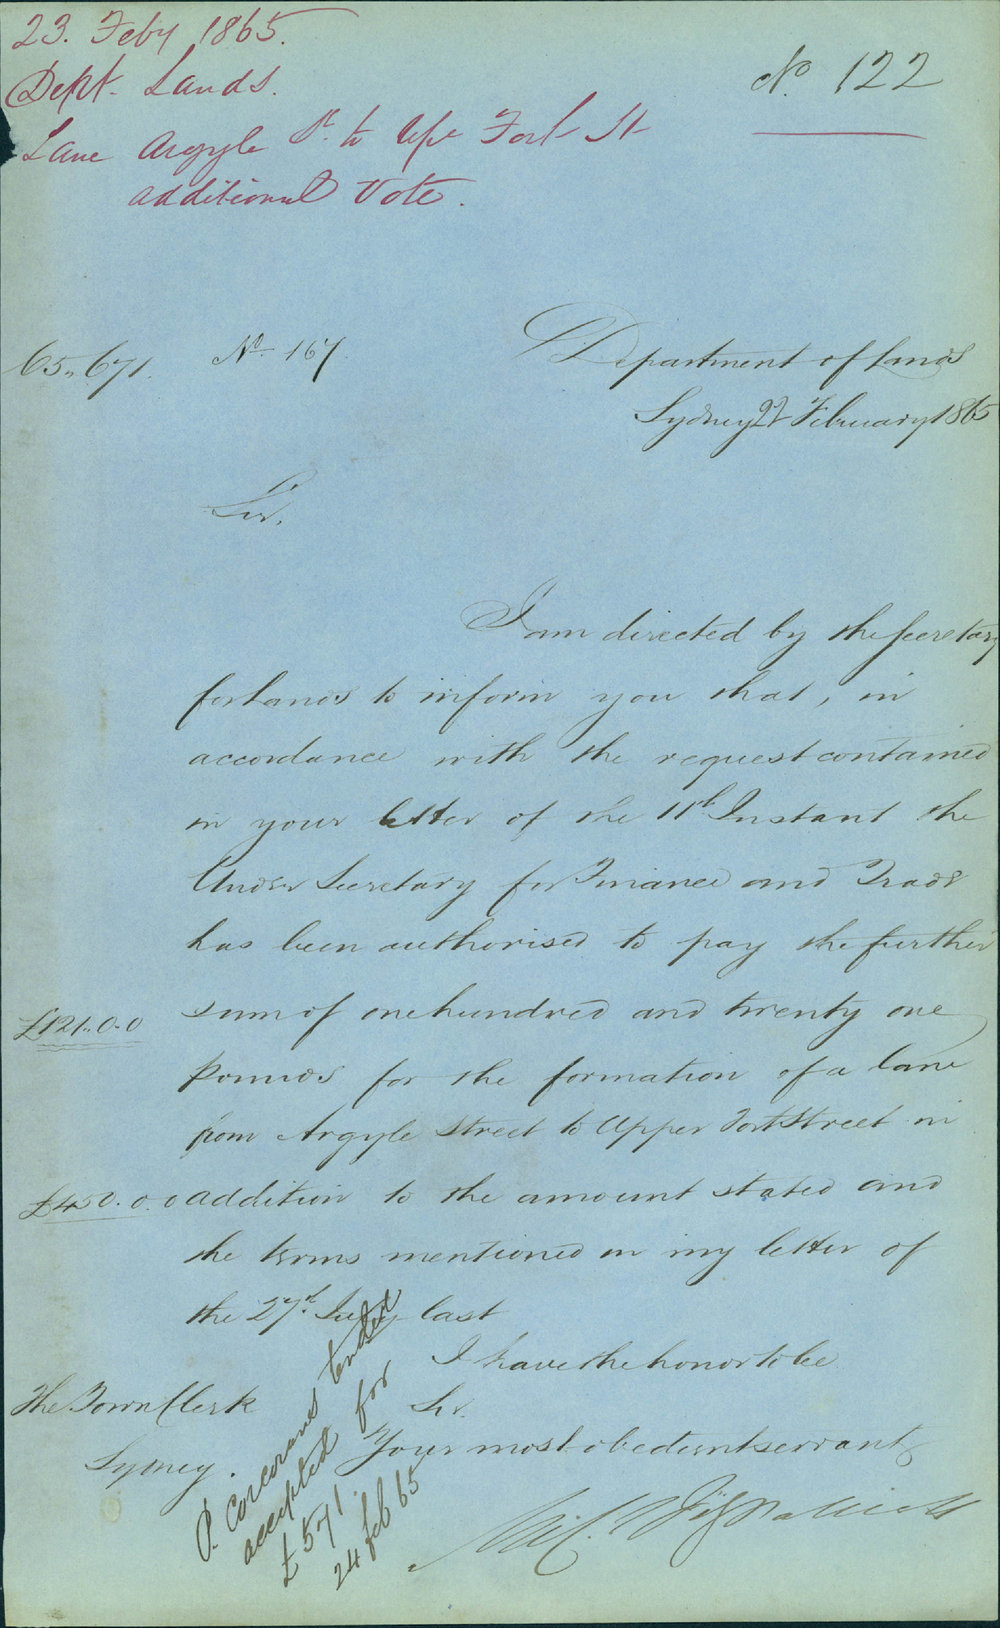 23. Feby 1865.
Dept. Lands.
Lane Argyle St to Upr Fort St
additional Vote.
No. 122
65..671. No. 167.
Department of Lands
Sydney 22 February 1865
Sir,
I am directed by the Secretary
for Lands to inform you that, in
accordance with the request contained
in your letter of the 11th Instant the
Under Secretary for Finance and Trade
has been authorised to pay the further
£121..0.0 sum of one hundred and twenty one
pounds for the formation of a lane
from Argyle Street to Upper Fort Street in
£450.0.0 addition to the amount stated and
the terms mentioned in my letter of
the 27th July last
I have the honor to be
Sir.
Your most obedient servant
Mich. Fitzpatrick
The Town Clerk
Sydney.
P. Corcorans tender
accepted for
£571.
24 feb 65